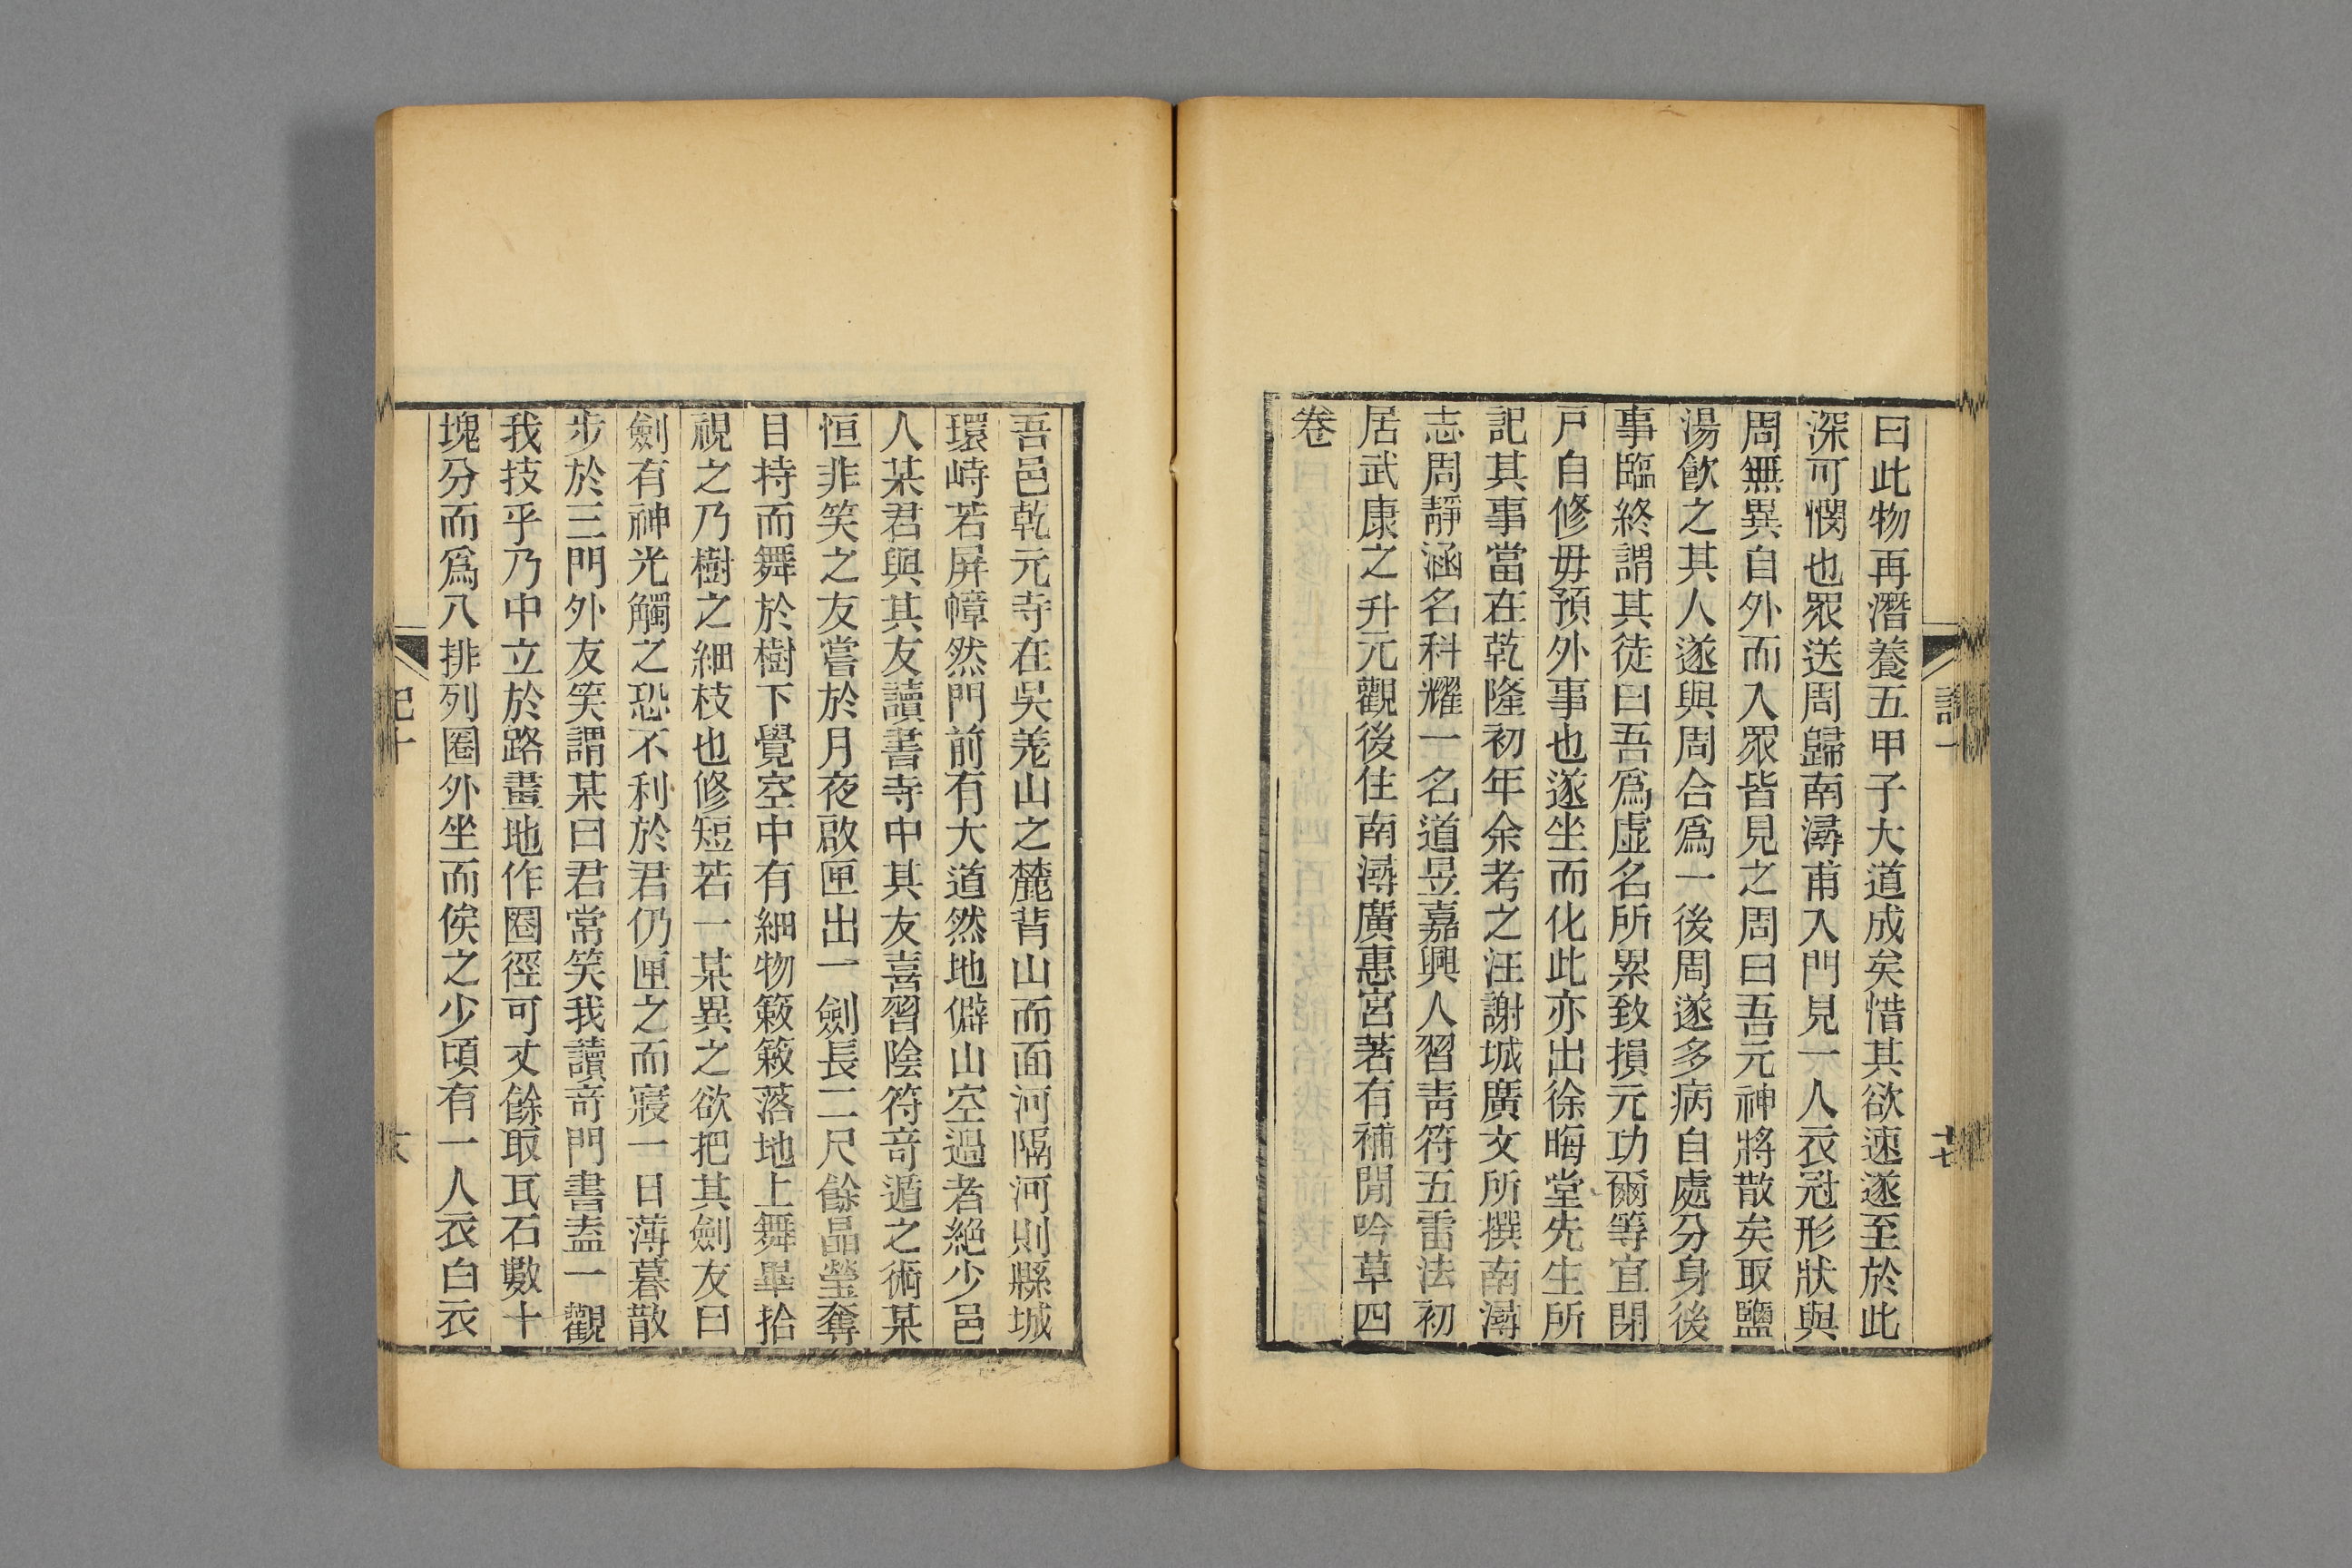 曰此物再潛養五甲子大道成矣惜其欲速遂至於此
深可憫也眾送周歸南潯甫入門見一人衣冠形狀與
周無異自外而入眾皆見之周曰吾元神將散矣取鹽
湯飮之其人遂與周合爲一後周遂多病自處分身後
事臨終謂其徒曰吾爲虛名所累致損元功爾等宜閉
戸自修毋預外事也遂坐而化此亦出徐晦堂先生所
記其事當在乾隆初年余考之汪謝城廣文所撰南潯
志周靜涵名科耀一名道昱嘉興人習靑符五雷法初
居武康之升元觀後住南潯廣惠宮著有補閒吟草四
卷
十七
吾邑乾元寺在吳羌山之麓背山而面河隔河則縣城
環峙若屏幛然門前有大道然地僻山空過者絶少邑
人某君與其友讀書寺中其友喜習陰符奇遁之術某
恒非笑之友嘗於月夜啟匣出一劍長二尺餘晶瑩奪
目持而舞於樹下覺空中有細物簌簌落地上舞畢拾
視之乃樹之細枝也修短若一某異之欲把其劍友曰
劍有神光觸之恐不利於君仍匣之而寢一日薄暮散
步於三門外友笑謂某曰君常笑我讀奇門書盍一觀
我技乎乃中立於路畫地作圈徑可丈餘取瓦石數十
塊分而爲八排列圈外坐而俟之少頃有一人衣白衣